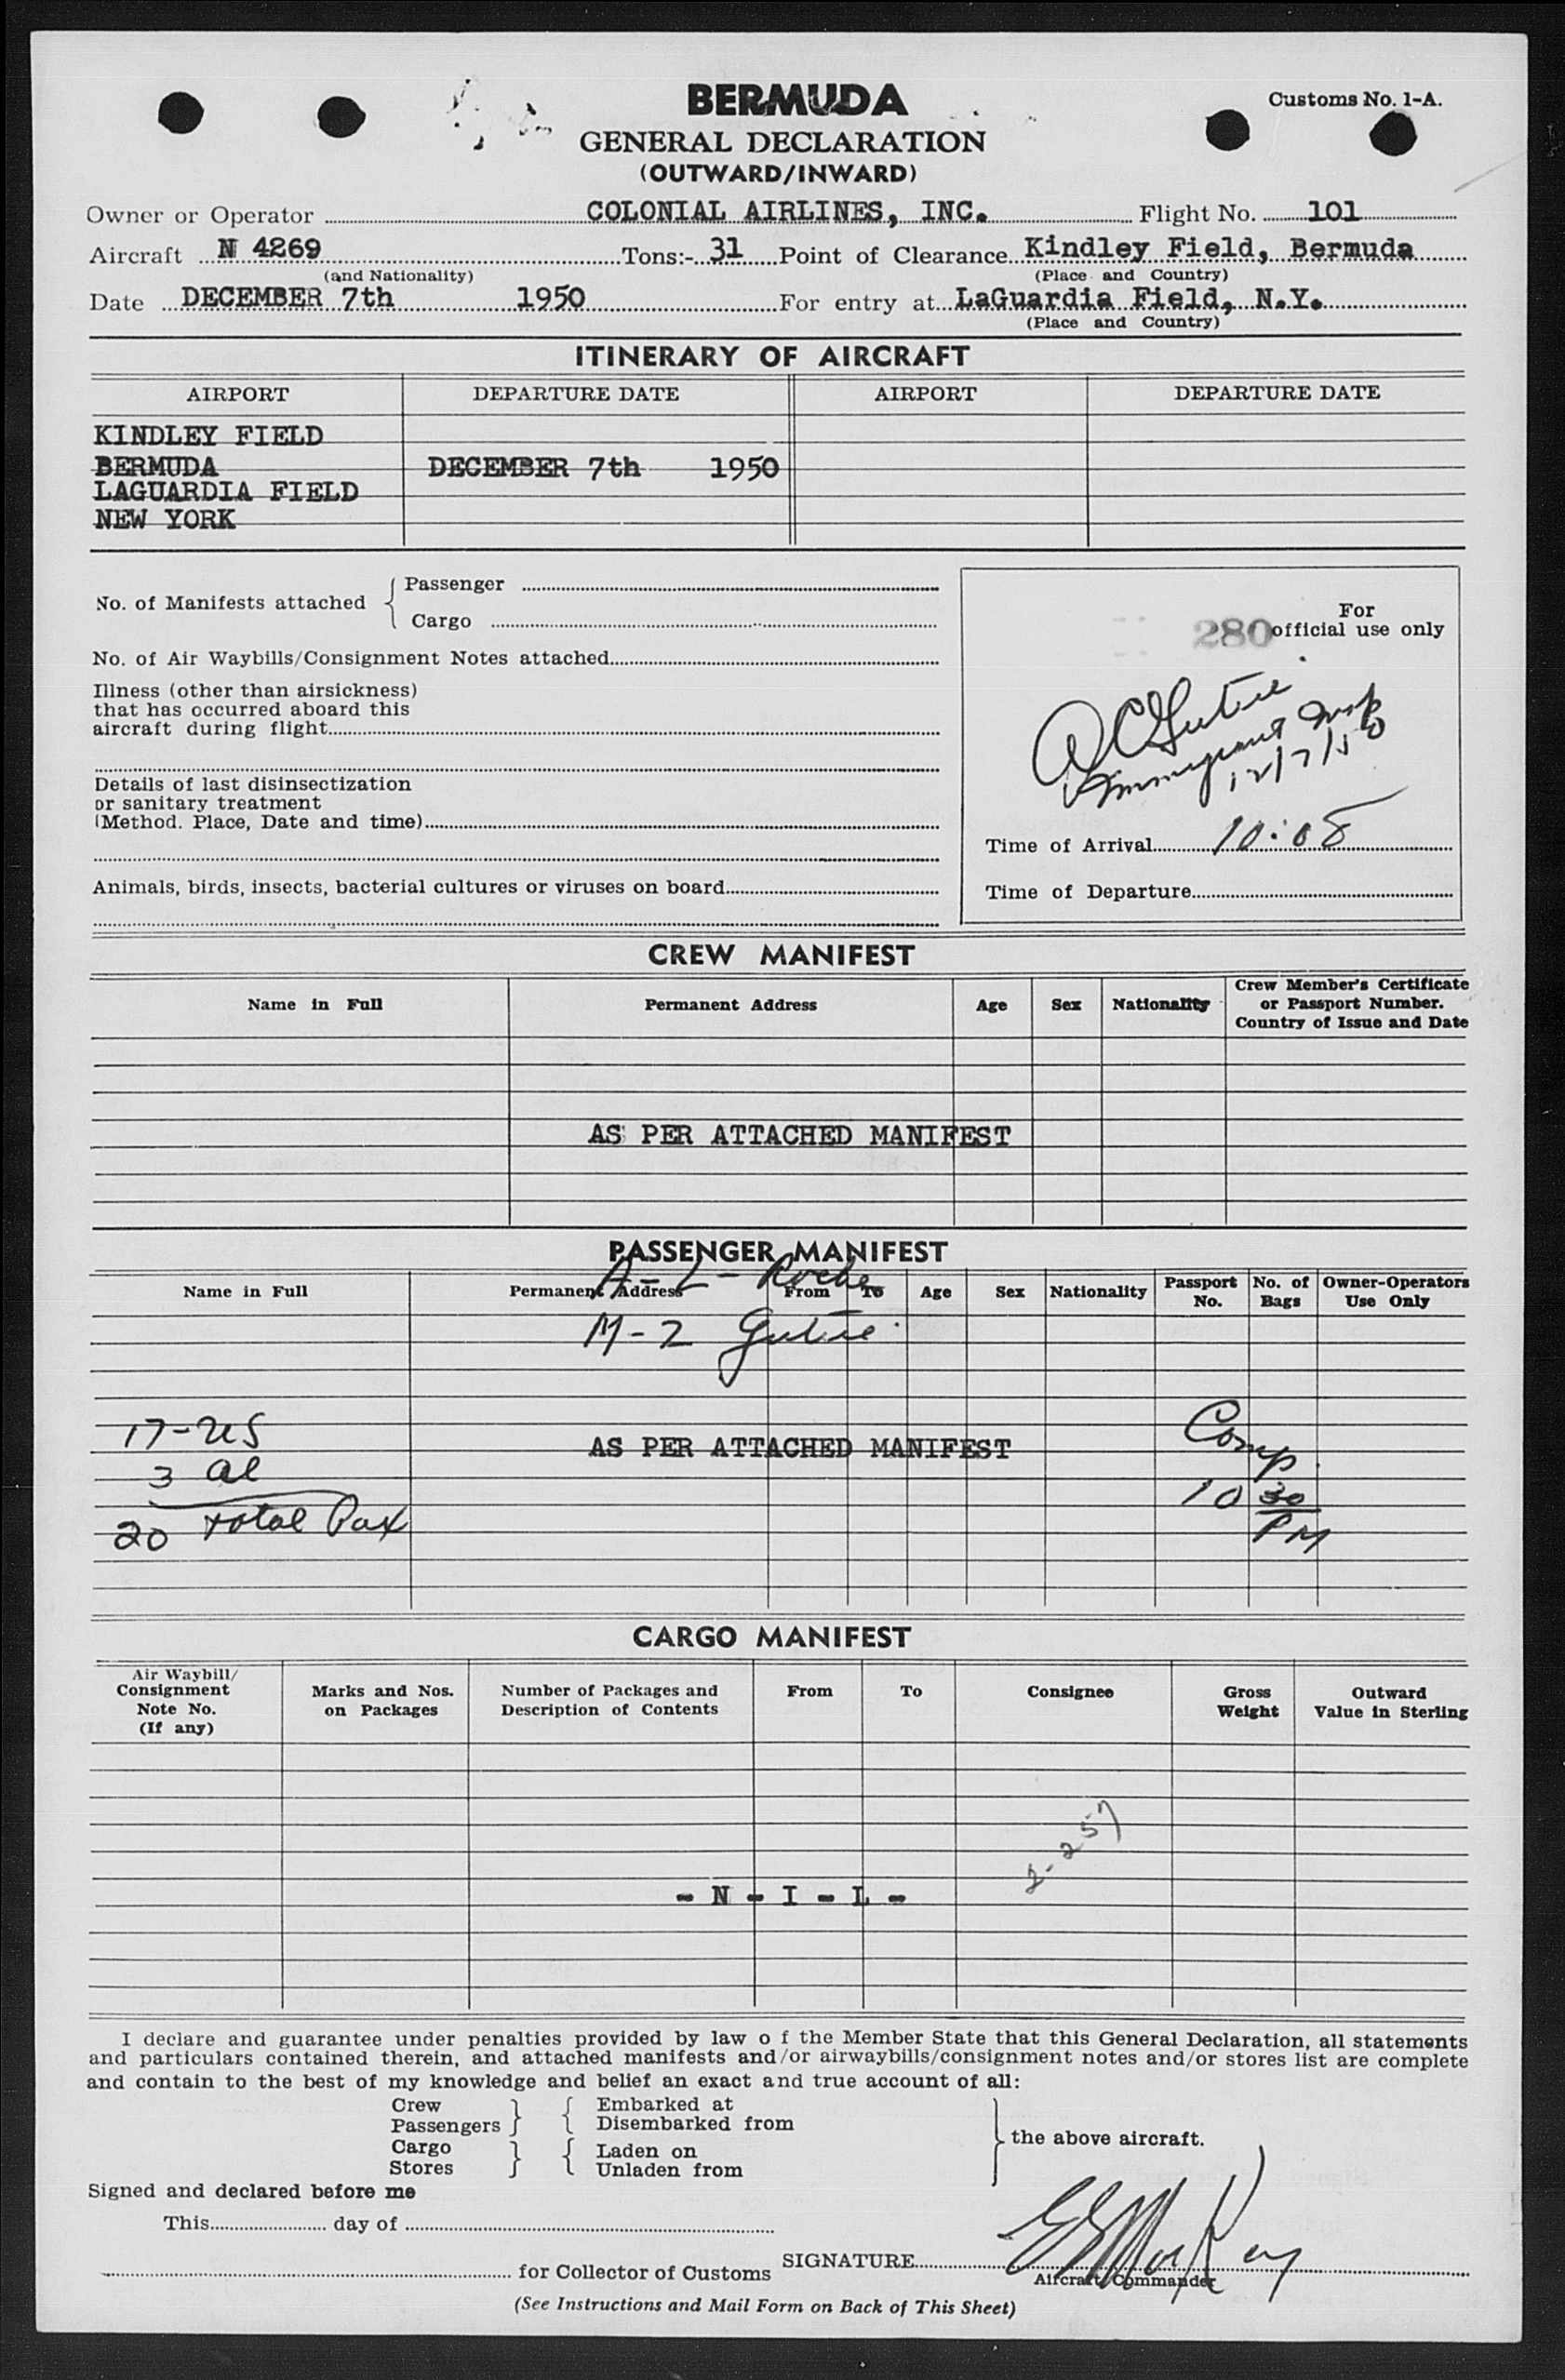 BERMUDA
Customs No. 1-A.
GENERAL DECLARATION
(OUTWARD/INWARD)
Owner or Operator COLONIAL AIRLINES, INC. Flight No. 101
Aircraft N 4269 Tons:- 31 Point of Clearance Kindley Field, Bermuda
(and Nationality) (Place and Country)
Date DECEMBER 7th 1950 For entry at LaGuardia Field, N.Y.
(Place and Country)
ITINERARY OF AIRCRAFT
AIRPORT DEPARTURE DATE AIRPORT DEPARTURE DATE
KINDLEY FIELD
BERMUDA DECEMBER 7th 1950
LAGUARDIA FIELD
NEW YORK
No. of Manifests attached { Passenger
Cargo
No. of Air Waybills/Consignment Notes attached
Illness (other than airsickness)
that has occurred aboard this
aircraft during flight
Details of last disinsectization
or sanitary treatment
(Method. Place, Date and time)
Animals, birds, insects, bacterial cultures or viruses on board
For
280 official use only
Immigrant Insp
12/7/50
Time of Arrival 10:08
Time of Departure
CREW MANIFEST
Name in Full Permanent Address Age Sex Nationality Crew Member's Certificate
or Passport Number.
Country of Issue and Date
AS PER ATTACHED MANIFEST
PASSENGER MANIFEST
A-2- Roche
Name in Full Permanent Address From To Age Sex Nationality Passport No. No. of Bags Owner-Operators Use Only
M-2
17-US
AS PER ATTACHED MANIFEST
Comp
3 al
10 30 PM
20 total Pax
CARGO MANIFEST
Air Waybill/
Consignment
Note No.
(If any)
Marks and Nos.
on Packages
Number of Packages and
Description of Contents
From
To
Consignee
Gross
Weight
Outward
Value in Sterling
2-257
- N - I - L -
I declare and guarantee under penalties provided by law o f the Member State that this General Declaration, all statements
and particulars contained therein, and attached manifests and/or airwaybills/consignment notes and/or stores list are complete
and contain to the best of my knowledge and belief an exact and true account of all:
Crew } { Embarked at
Passengers Disembarked from
the above aircraft.
Cargo } { Laden on
Stores Unladen from
Signed and declared before me
This day of
SIGNATURE
for Collector of Customs
Aircraft Commander
(See Instructions and Mail Form on Back of This Sheet)